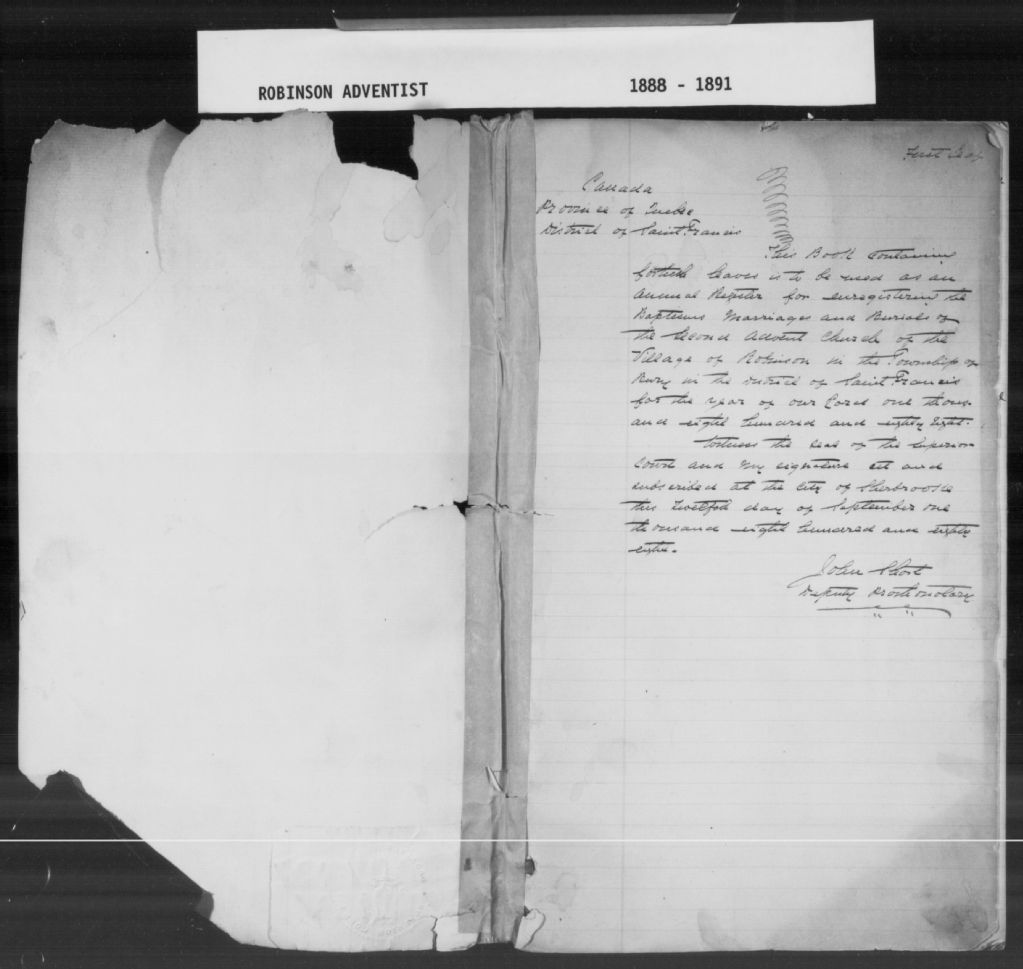 ROBINSON ADVENTIST 1888 - 1891
First Leaf
Canada
Province of Quebec
District of Saint Francis
This Book containing
leaves is to be used as an
Annual Register for enregistering the
Baptisms Marriages and Burials of
the Second Advent Church of the
Village of Robinson in the Township of
Bury in the District of Saint Francis
for the year of our Lord one thous-
and eight hundred and eighty eight.
Witness the seal of the Superior
Court and my signature set and
subscribed at the City of Sherbrooke
this Twelfth day of September one
thousand eight hundred and eighty
eight.
John Short
Deputy Prothonotary